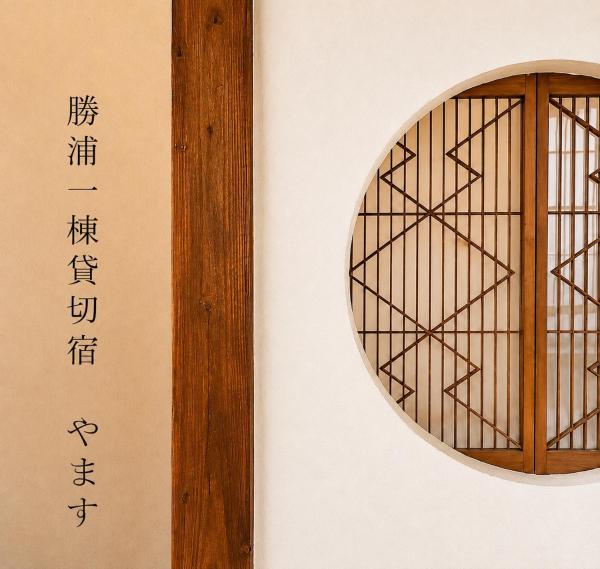 勝浦一棟貸切宿 やます